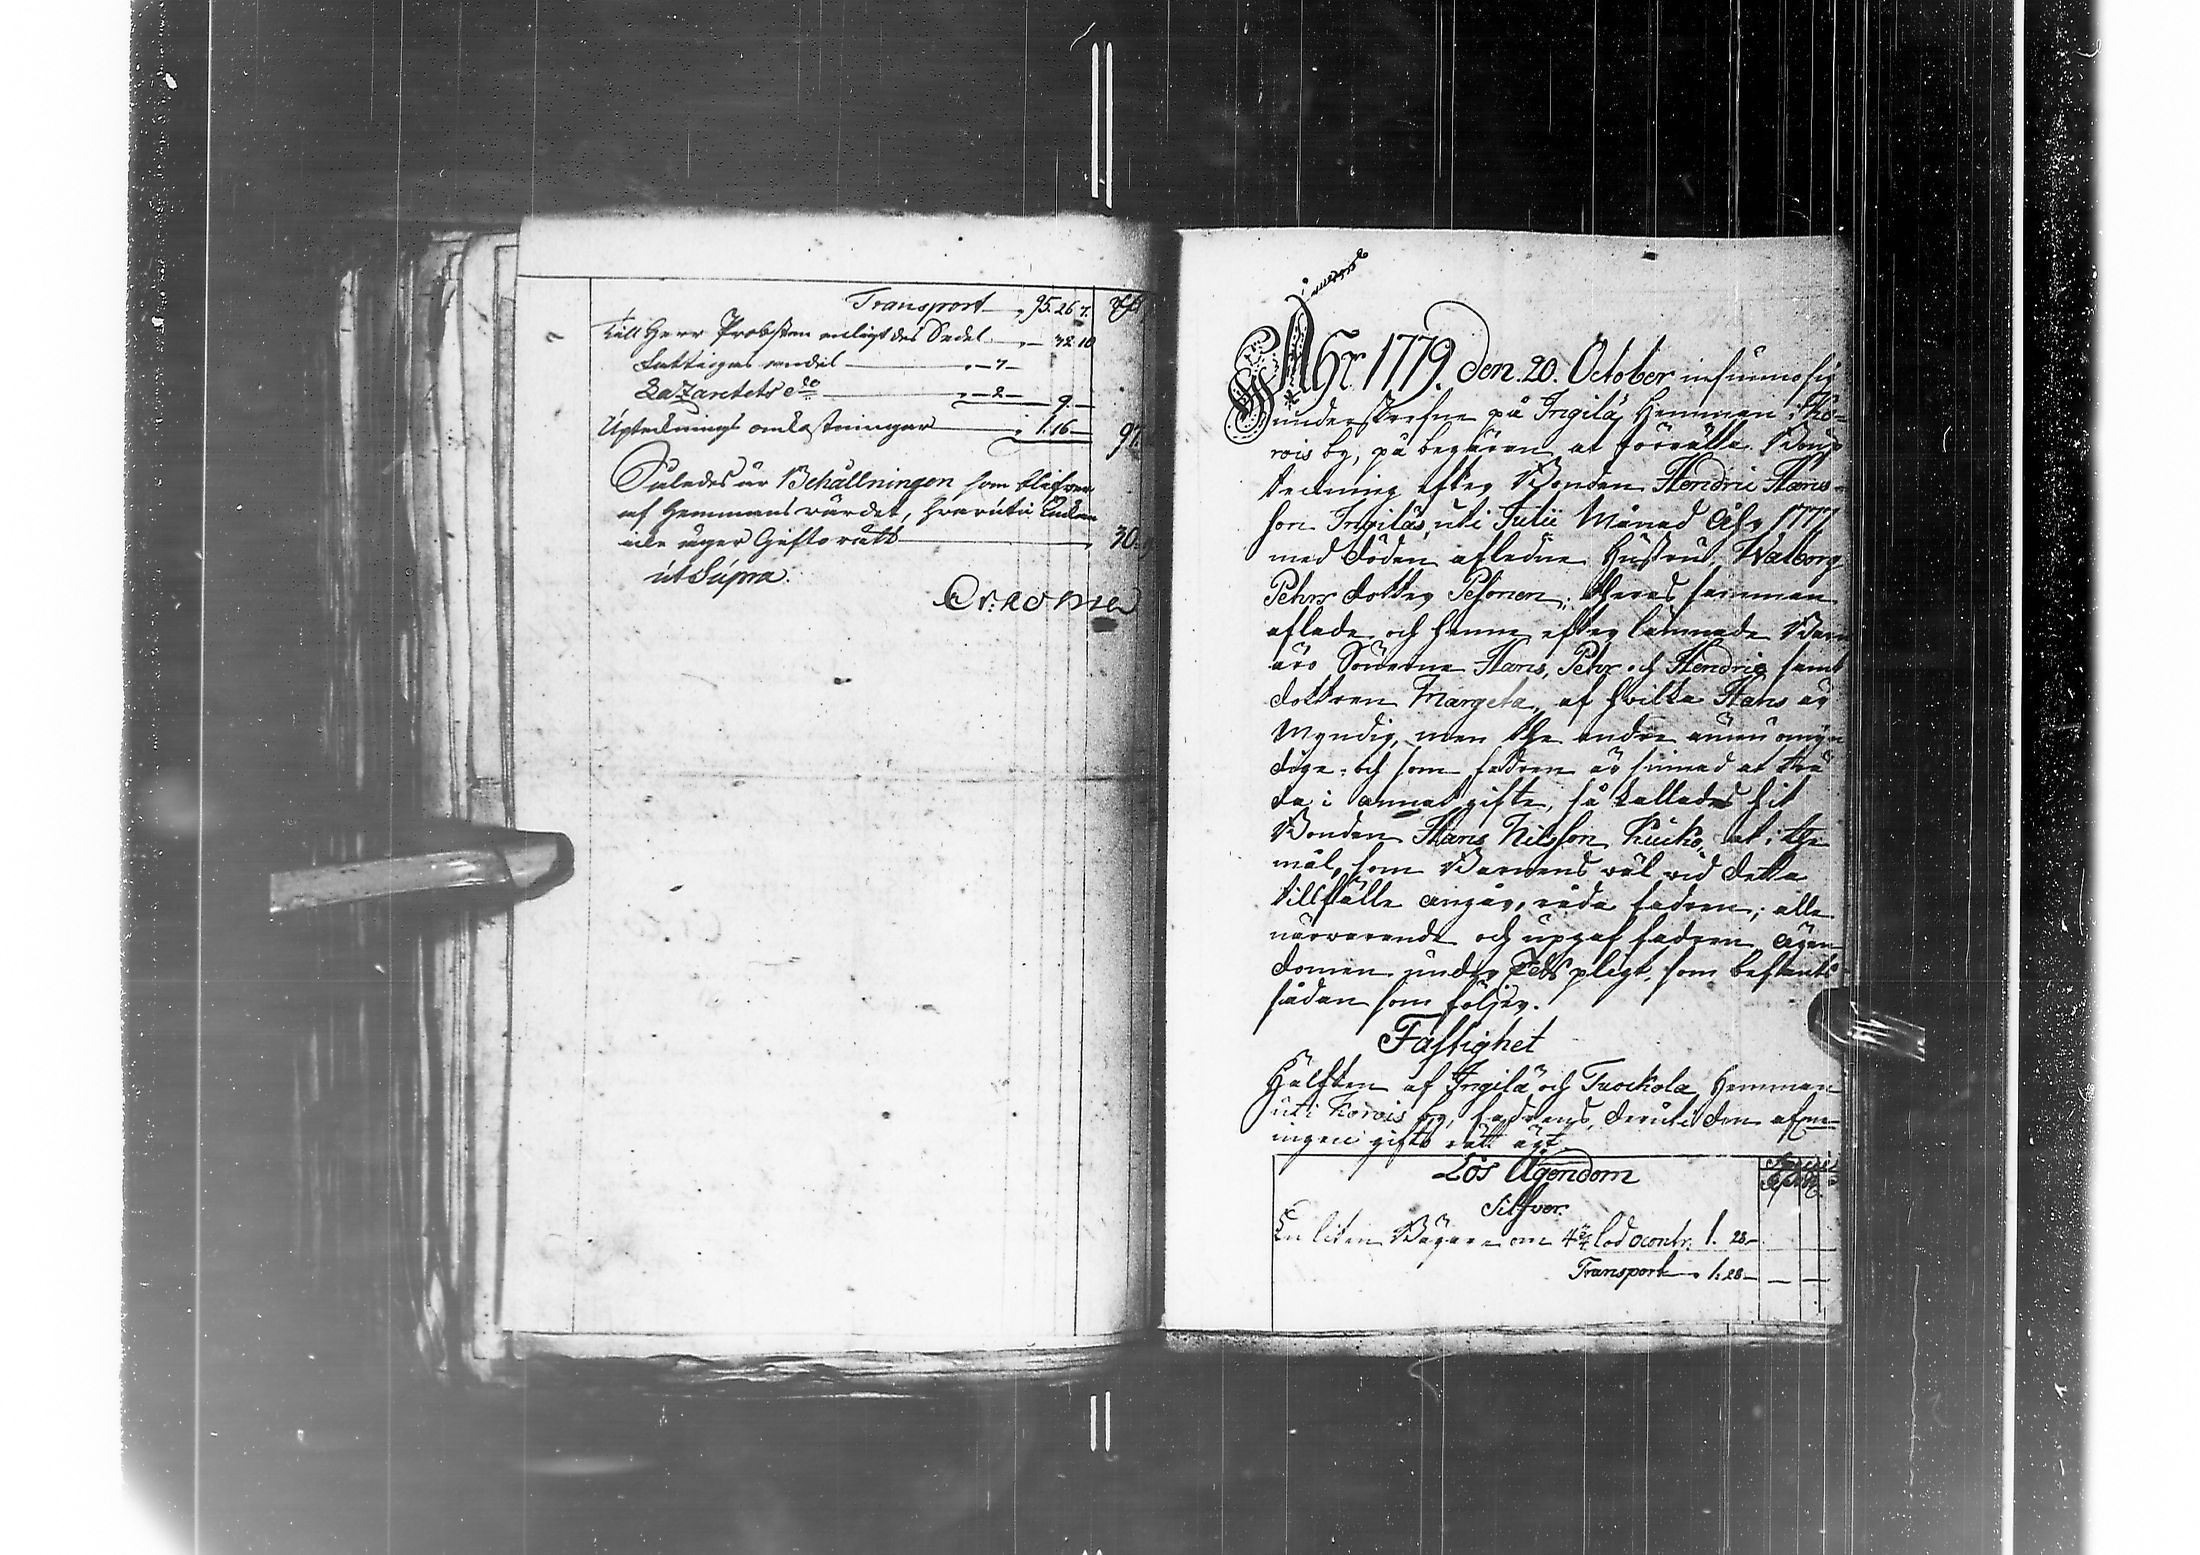 Transport 95. 26 7.
till Herr Probsten enligt des Sedel — 32 10
Fattigas andel — 7 —
Lazaretets do — 2 — 9 —
Uptecknings omkostningar 1. 16 — 97
Således är Behållningen som blifver
af Hemmans värdet, hvarutii Enkan
icke äger Giftorätt 30
ut Supra.
Åhr 1779. den 20. October infunno sig
underskrefne på Ingilä Hemman i Ko-
rois by, på begäran at förrätta Boup-
teckning efter Bonden Hendric Hans-
son Ingiläs, uti Julii Månad Åhr 1777
med döden afledne Hustru, Walborg
Pehrs dotter Pesonen; theras samman
aflade och henne efter lämnade Barn
äro Sönerne Hans, Pehr och Hendric samt
dottren Margeta, af hvilka Hans är
Myndig, men the andre ännu omyn
dige: och som fadren är sinnad at trä
da i annat gifte, så kallades hit
Bonden Hans Nilsson Kuiko, at i the
mål, som Barnens väl vid detta
tillfälle angår, råda fadren; alle
närvarande och upgaf fadren ägen
domen under Eds pligt, som befants
sådan som följer.
Fastighet
Hälften af Ingilä och Tuockola Hemman
uti Korois by, fadrens, deruti den
ingen gifto rätt ägt
Lös Ägendom
Silfver.
En liten Bägare om 4 3/4 lod contr. 1. 28 —
Transport 1. 28 — — —